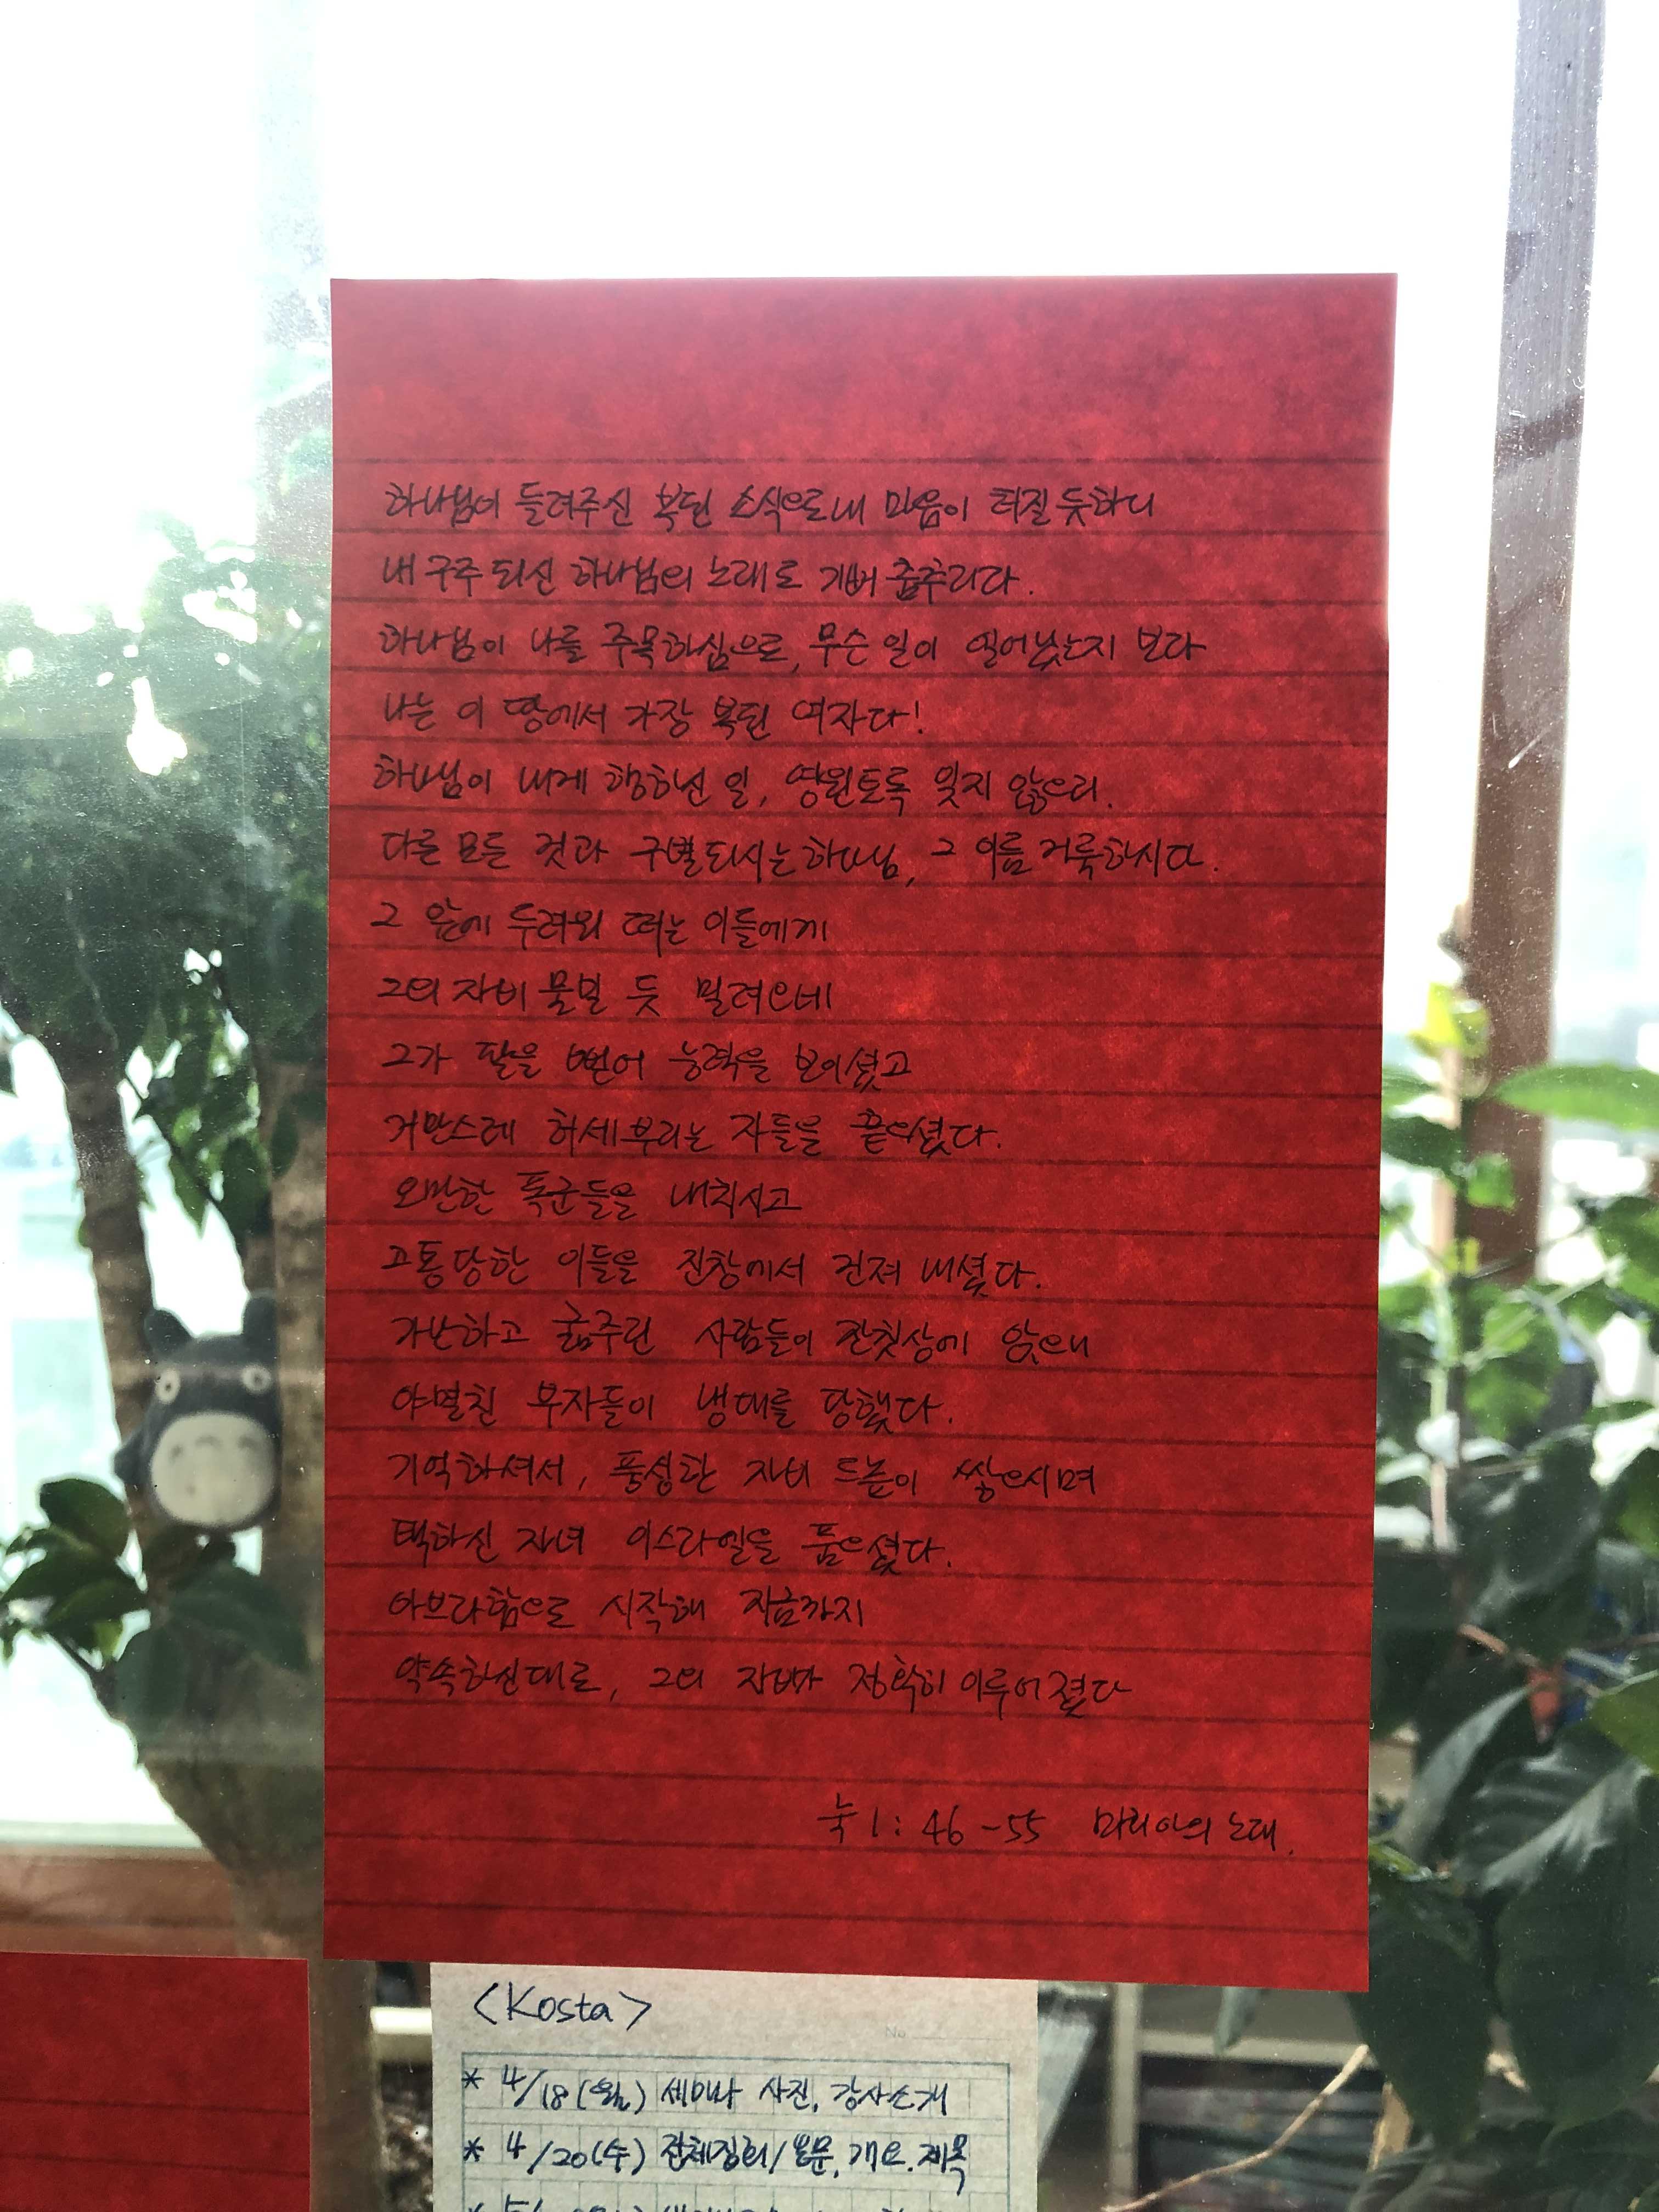 하나님이 들려주신 복된 소식으로 내 마음이 터질 듯하니
내 구주 되신 하나님의 노래로 기뻐 춤추리라.
하나님이 나를 주목하심으로, 무슨 일이 일어났는지 보라
나는 이 땅에서 가장 복된 여자다!
하나님이 내게 행하신 일, 영원토록 잊지 않으리.
다른 모든 것과 구별되시는 하나님, 그 이름 거룩하시다.
그 앞에 두려워 떠는 이들에게
그의 자비 물밀 듯 밀려오네
그가 팔을 뻗어 능력을 보이셨고
거만스레 허세부리는 자들을 흩으셨다.
오만한 폭군들을 내치시고
고통당한 이들을 진창에서 건져 내셨다.
가난하고 굶주린 사람들이 잔칫상에 앉으니
야멸친 부자들이 냉대를 당했다.
기억하셔서, 풍성한 자비 드높이 쌓으시며
택하신 자녀 이스라엘을 품으셨다.
아브라함으로 시작해 지금까지
약속하신대로, 그의 자비가 정확히 이루어졌다
눅 1 : 46 - 55 마리아의 노래.
<Kosta>
No
* 4/18(월) 세미나 사진, 강사소개
* 4/20(수) 전체집회/본문, 개요. 제목